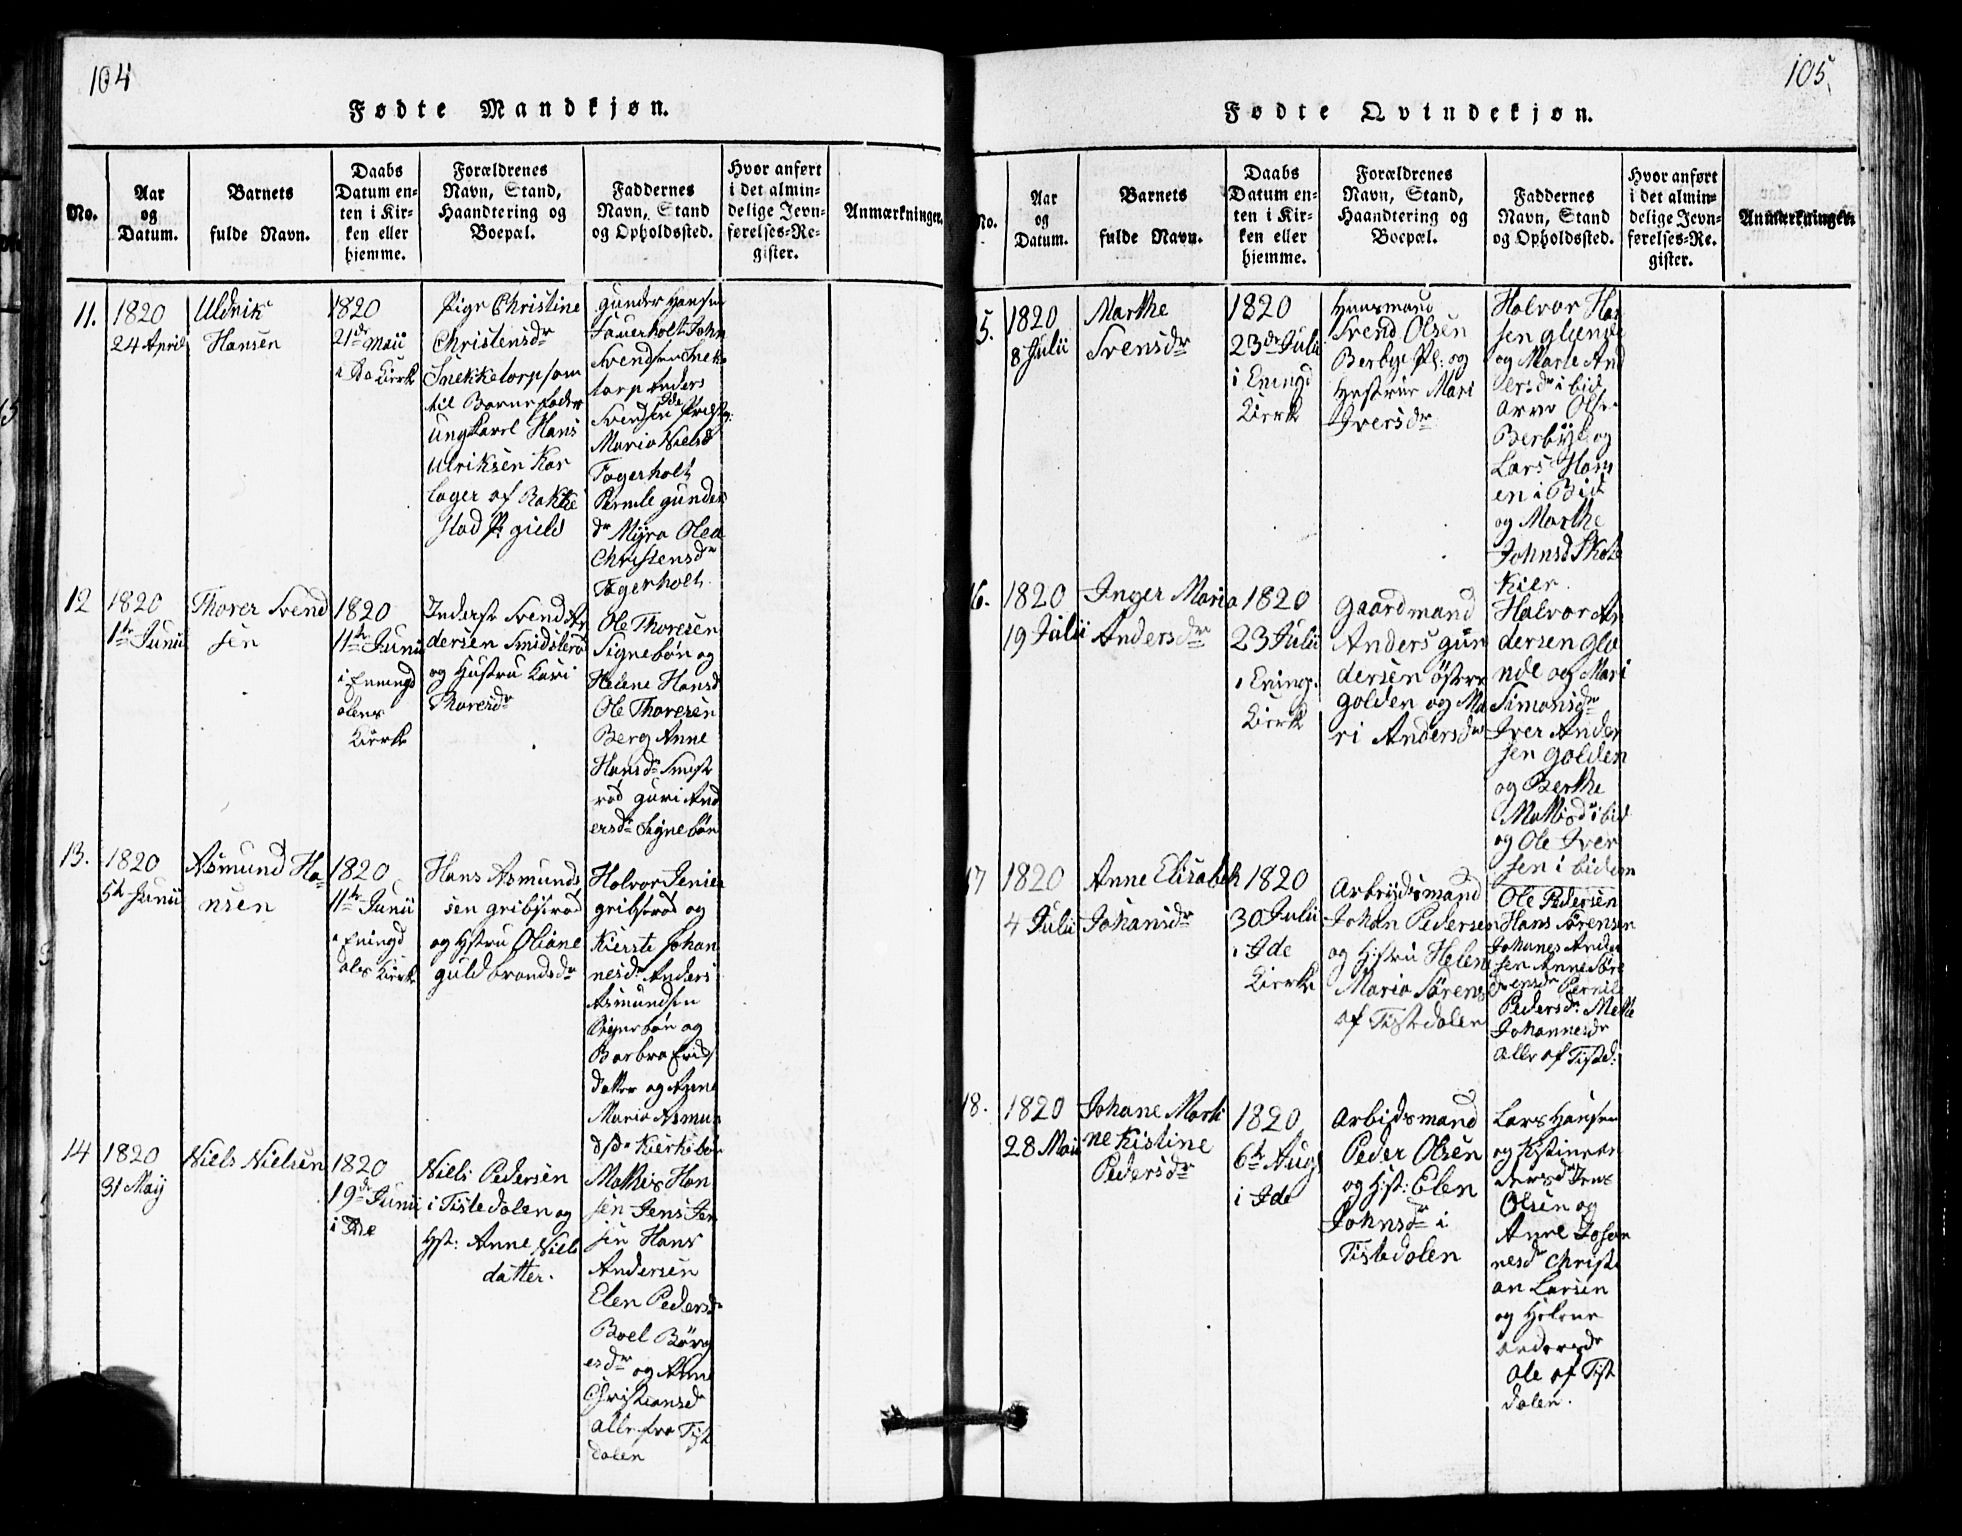 104
Fødte Mandkjøn.
No.
Aar
og
Datum.
Barnets
fulde Navn.
Daabs
Datum en-
ten i Kir-
ken eller
hjemme.
Forældrenes
Navn, Stand,
Haandtering og
Boepæl.
Faddernes
Navn, Stand
og Opholdssted.
Hvor anført
i det almin-
delige Jevn-
førelses-Re-
gister.
Anmærkninger.
11.
1820
24 April
Uldrik
Hansen
1820
21de Maii
i Ide Kirke
Pige Christine
Christensdr
Snekketorp som
til Barnefader
Ungkarl Hans
Ulriksen Kor
lager af Rakke
stad Pr gield
Gunder Hansen
Fauerholt John
Svendsen Snek
torp Anders
Svendsen
Maria Nielsd
Fagerholt
Pernile Gunders
dr Myra Olea
Christensdr
Fagerholt.
12
1820
1te Junii
Thorer Svend
sen
1820
11te Junii
i Enningd
alens
Kirke
Inderst Svend An
dersen Smidsterø
og Hustru Kari
Thoresdr
Ole Thoresen
Signebøn og
Helene Hansd
Ole Thoresen
Berg Anne
Hansdr Smist
rød Guri And
ersdr Signebøn
13.
1820
5te Junii
Asmund Ha-
nsen
1820
11te Junii
i Eningd
dales Kirke
Hans Asmunds
sen Gribsrød
og Hstru Oliane
Guldbrandsdr
Halvor Jensen
Gribsrød og
Kierste Johan
nesdr Anders
Asmundsen
Signebøn og
Barbra
datter og
Maria Asmun
dsdr Kirkebøn
14
1820
31 May
Niels Nielsen
1820
19de Junii
i Ide
Niels Pedersen
i Tistedalen og
Hst: Anne Niels
datter.
Mathis Han
sen Jens Jen
sen Hans
Andersen
Elen Pedersdr
Boel Børg
esdr og Anne
Christiansd
alle fra Tist
dalen
105.
Fødte Qvindekjøn.
No.
Aar
og
Datum.
Barnets
fulde Navn.
Daabs
Datum en-
ten i Kir-
ken eller
hjemme.
Forældrenes
Navn, Stand,
Haandtering og
Boepæl.
Faddernes
Navn, Stand
og Opholdssted.
Hvor anført
i det almin-
delige Jevn-
førelses-Re-
gister.
Anmærkninger.
5.
1820
8 Julii
Marthe
Svensdr
1820
23de Julii
i Eningd
Kirke
Huusmand
Svend Olsen
Berbye Pl: og
Hustrue Mari
Iversdr
Halvor Han
sen Glænde
og Marte And
ersdr ibid
Arne Olse
Berbye og
Lars Hans
en i Bid
og Marthe
Johnsd Skole
Kier.
16.
1820
19 Julii
Inger Maria
Andersdr
1820
23 Julii
i Ening.
Kirke
Gaardmand
Anders Gun
dersen Østre
Golden og Ma
ri Andersdr
Halvor An
dersen Glæ
nde og Mari
Simonsdr
Iver Ander
sen Golden
og Berthe
Mathisdr ibid
og Ole Iver
sen ibidem
17
1820
4 Julii
Anne Elisabeh
Johansdr
1820
30 Julii
i Ide
Kirke
Arbeydsmand
Johan Pedersen
og Hstru Helene
Maria Sørens
af Tistedalen
Ole Pedersen
Hans Sørensen
Johanes Ander
sen Anne Søre
Pernile
Pedersdr Mette
Johannesdr
alle af Tisted:
18.
1820
28 Maii
Johane Marti
ne Kistine
Pedersdr
1820
6te Aug
i Ide
Arbeidsmand
Peder Olsen
og Hst: Elen
Johnsdr i
Tistedalen
Lars Hansen
og Kistine An
dersd Jens
Olsen og
Anne Johan
nesd Christi
an Larsen
og Helene
Andersdr
Ale af Tist
dalen.